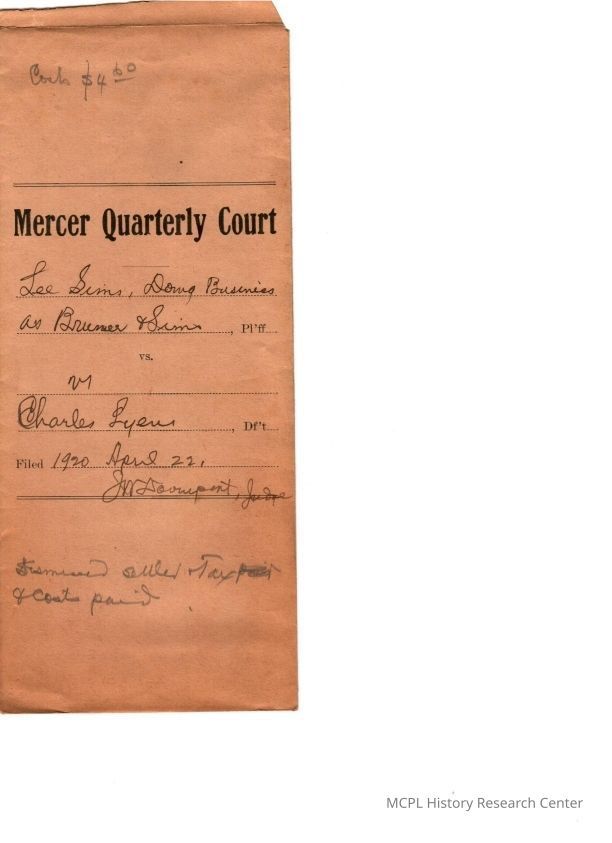 Costs $4 60
Mercer Quarterly Court
Lee Sims, Doing Business
as Brumer & Sims, Pl'ff
vs.
vs
Charles Lyens, Df't
Filed 1920 April 22,
Judge
Dismissed settled Tax
& Costs paid
MCPL History Research Center